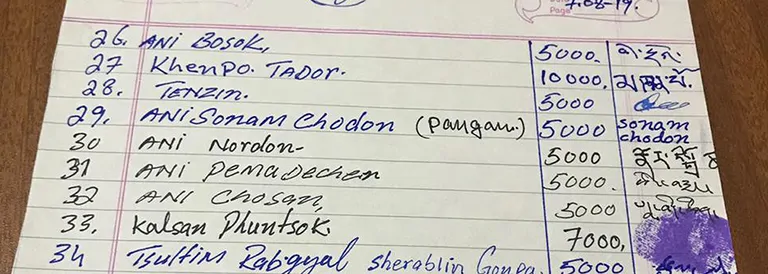 Page 7.08-19.
26. ANI BOSOK, 5000.
27 KhenPo. TADOR. 10000,
28. TENZIN. 5000
29. ANI SONAM Chodon (Pangan.) 5000 sonam chodon
30 ANI Nordon- 5000
31 ANI PemaDechen 5000.
32 ANI Chosan, 5000
33. Kalsan Phuntsok. 7000,
34 Tsultim Rabgyal Sherablin Gonpa. 5000